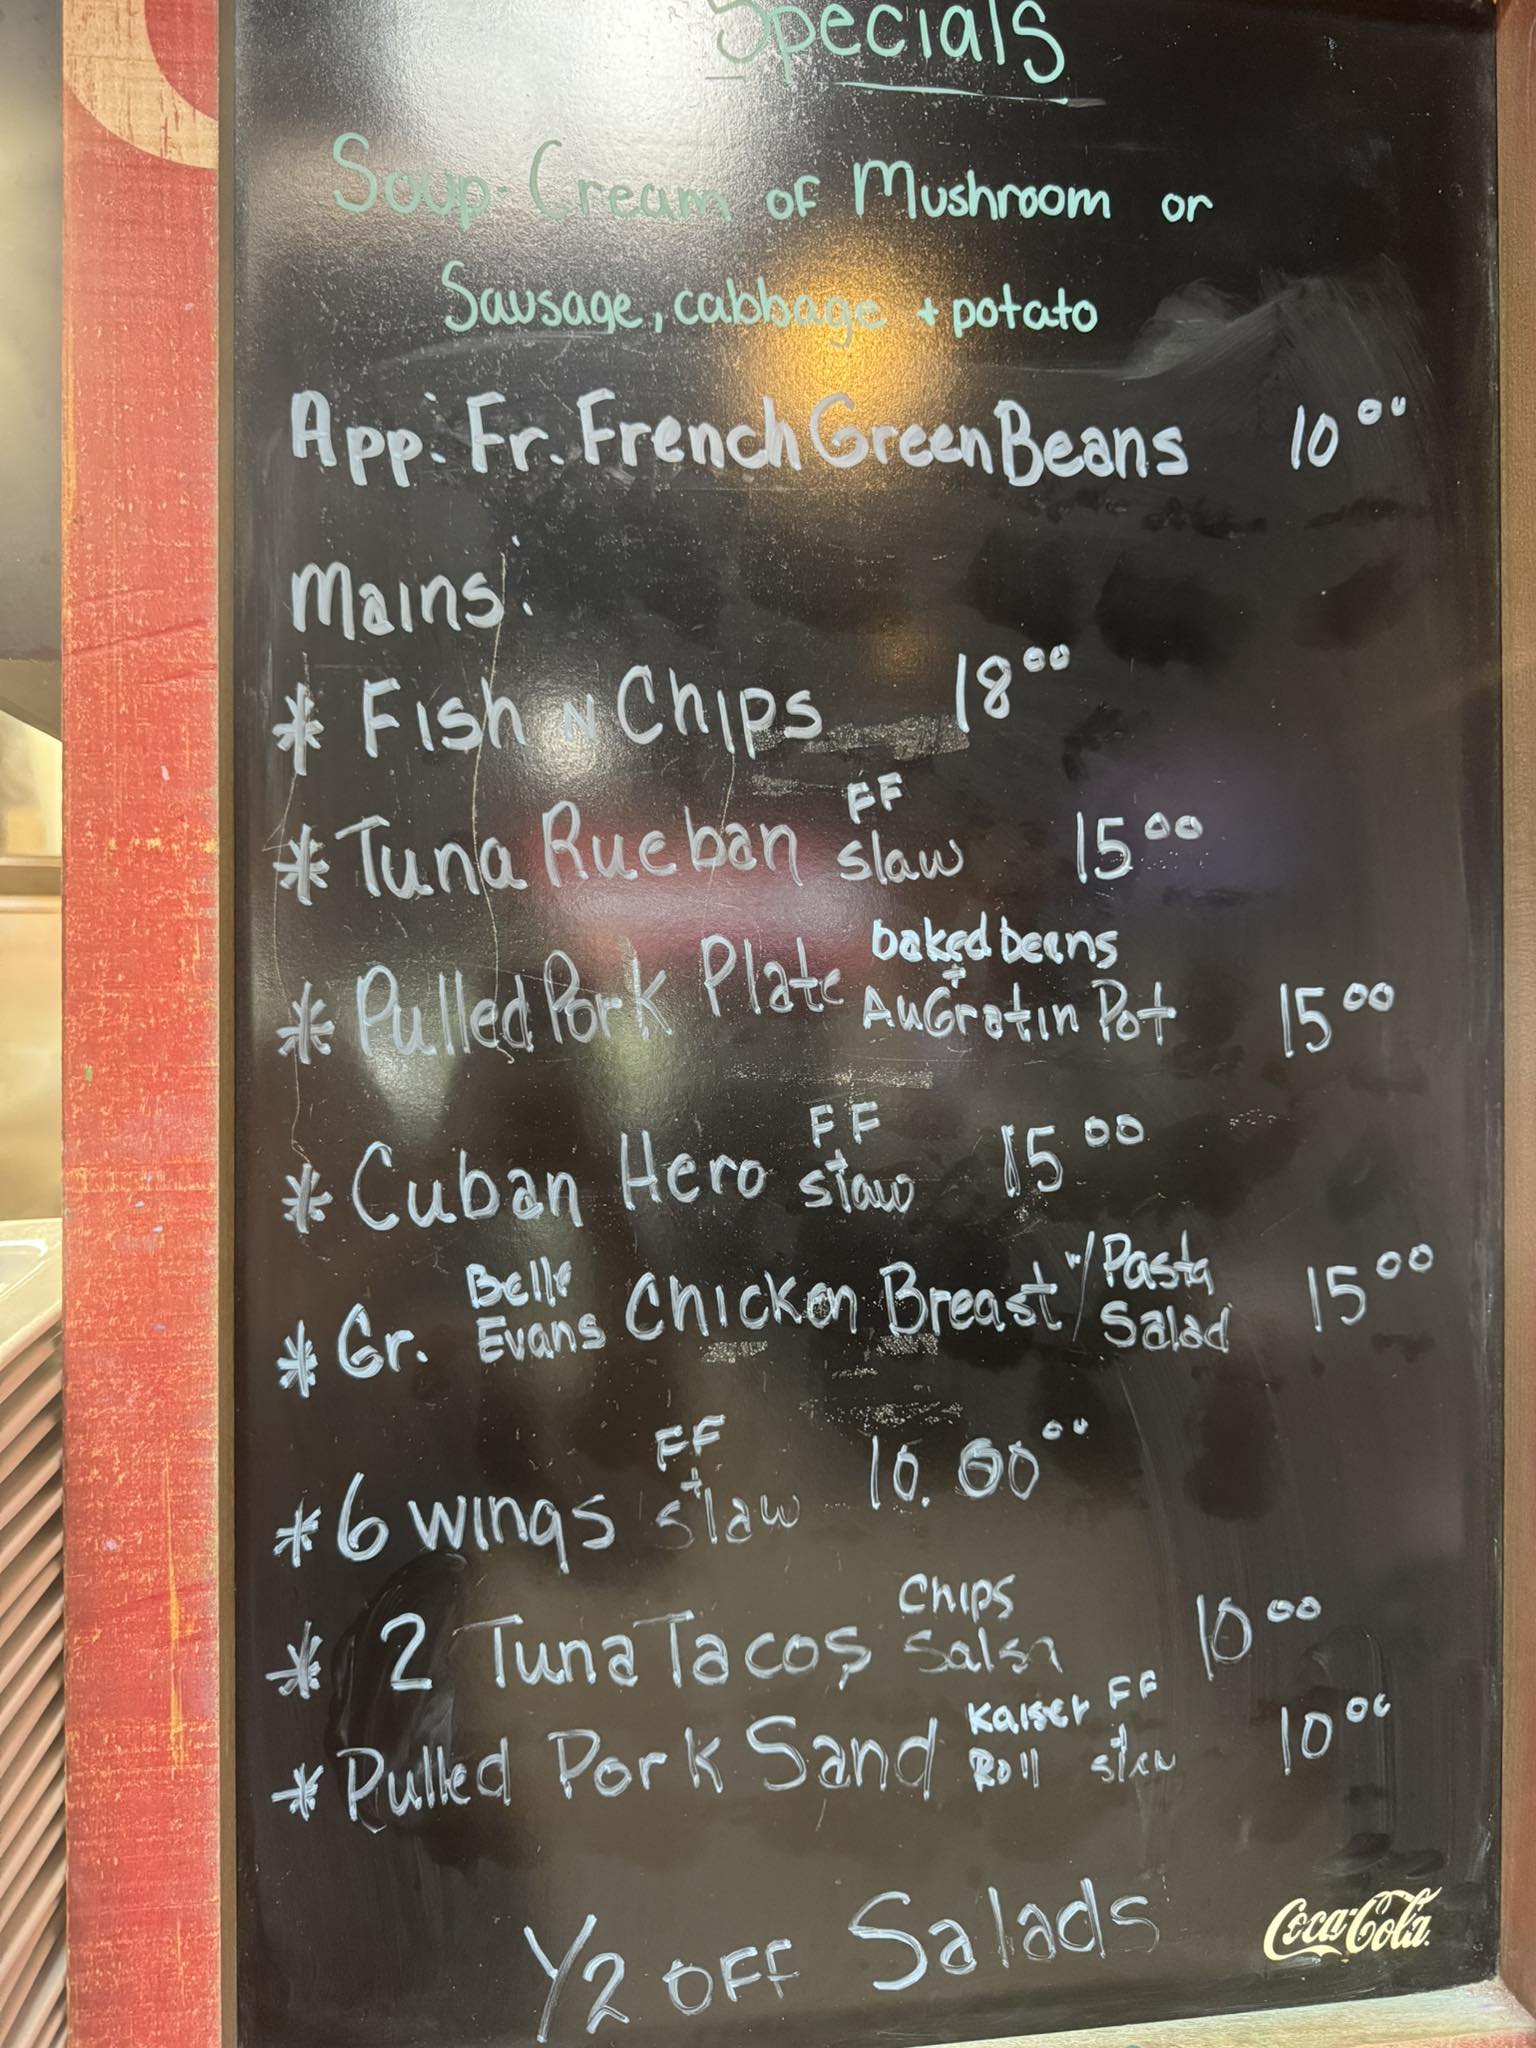 Specials
Soup - Cream of Mushroom or
Sausage, cabbage + potato
App. Fr. French Green Beans 10 00
Mains:
* Fish N Chips 18 00
* Tuna Rueban FF slaw 15 00
* Pulled Pork Plate baked beans + AuGratin Pot 15 00
* Cuban Hero FF + slaw 15 00
* Gr. Belle Evans Chicken Breast w/ Pasta Salad 15 00
* 6 wings FF + slaw 10. 00 00
* 2 Tuna Tacos Chips Salsa 10 00
* Pulled Pork Sand Kaiser Roll FF + slaw 10 00
1/2 OFF Salads
Coca-Cola